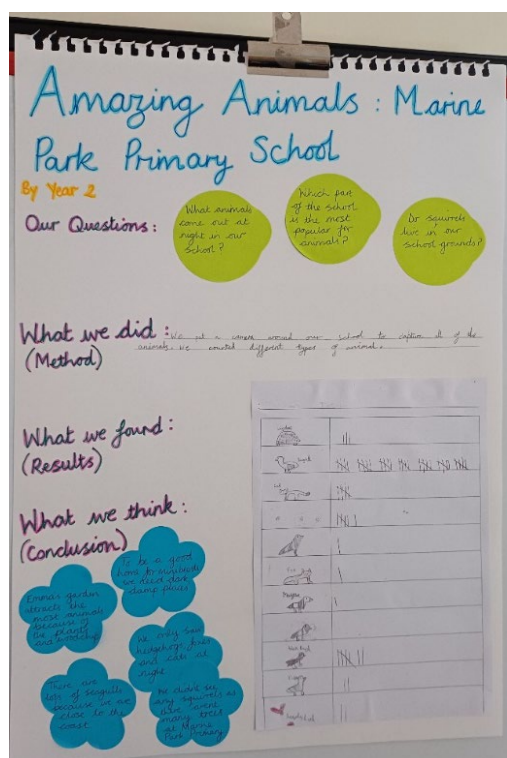 Amazing Animals : Marine
Park Primary School
By Year 2
Our Questions:
What animals
come out at
night in our
school?
Which part
of the school
is the most
popular for
animals?
Do squirrels
live in our
school grounds?
What we did :
(Method)
We put a camera around our school to capture all of the
animals. We counted different types of animal.
What we found :
(Results)
What we think :
(Conclusion)
To be a good
home for minibeasts
we need dark
damp places
Emma's garden
attracts the
most animals
because of
the plants
and woodchip
We only saw
hedgehogs, foxes
and cats at
night
There are
lots of seagulls
because we are
close to the
coast
We didn't see
any squirrels as
there weren't
many trees
at Marine
Park Primary
Seagull
Cat
Fox